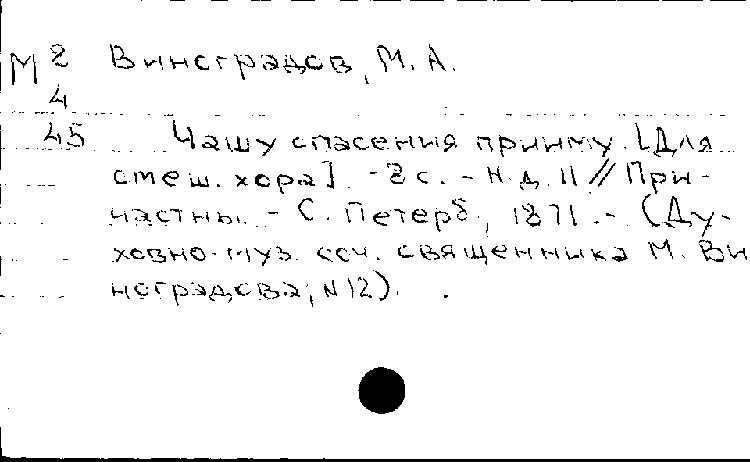 М 2 Виноградов, М. А.
4
45 Чашу спасения прииму. [Для
смеш. хора]. - 2 с. - Н. д. 11 // При-
частны. - С. Петерб., 1871. - (Ду-
ховно-муз. соч. священника М. Ви
ноградова; N 12).